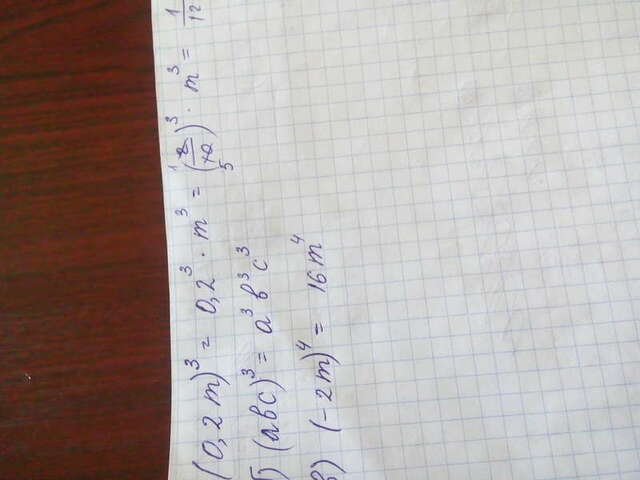 (0,2m)³ = 0,2³ · m³ = (2/10)³ · m³ = 1/12
б) (abc)³ = a³b³c³
в) (-2m)⁴ = 16m⁴